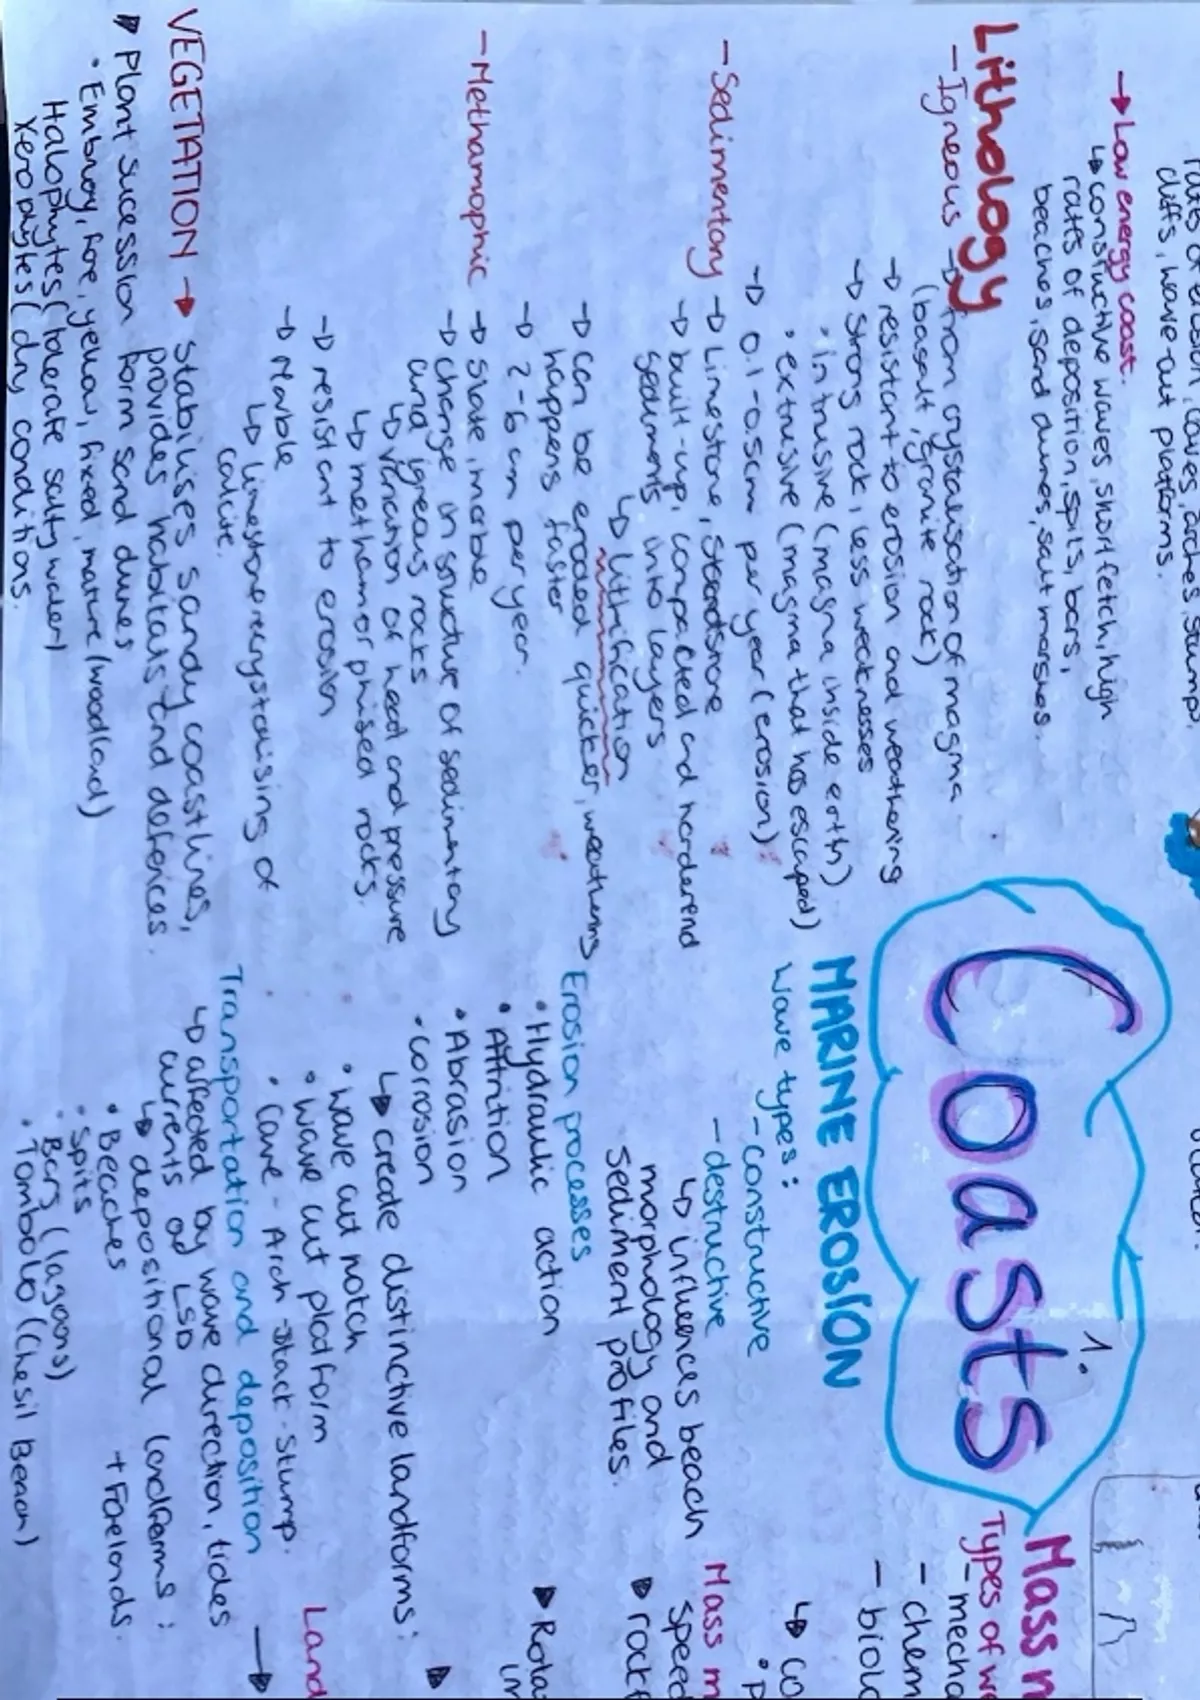 rates of erosion, caves, arches, stumps,
cliffs, wave-out platforms.
→ Low energy coast.
↳ constructive waves, short fetch, high
rates of deposition, spits, bars,
beaches, sand dunes, salt marshes.
Lithology
- Igneous → from crystalisation of magma
(basalt, granite rock)
→ resistant to erosion and weathering
→ Strong rock, less weaknesses
• intrusive (magma inside erth)
• extrusive (magma that has escaped)
→ 0.1-0.5cm per year (erosion)
- Sedimentary → Limestone, Standstone
→ built-up, compacted and harderend
sediments into layers
↳ Lithification
→ can be eroded quicker, weathering
happens faster
→ 2-6 cm per year.
- Methamophic → slate, marble
→ change in structure of sedimentary
and igneous rocks
↳ variation of heat and pressure
↳ methamorphised rocks.
→ resistant to erosion
→ Marble
↳ limestone recrystalising of
calcite.
VEGETATION → Stabilises sandy coastlines,
provides habitats and defences.
▶ Plant sucession form sand dunes
• Embroy, fore, yellow, fixed, mature (woodland)
Halophytes (tolerate salty water)
Xerophytes (dry conditions.
Coasts
1.
MARINE EROSION
Wave types: - constructive
- destructive
↳ influences beach
morphology and
sediment profiles.
Erosion processes
• Hydraulic action
• Attrition
• Abrasion
• corrosion
↳ create distinctive landforms:
• wave cut notch
• wave cut platform
• Cave - Arch - Stack - Stump.
Transportation and deposition
↳ affected by wave direction, tides
currents and LSD
↳ depositional landforms:
• Beaches + Forelands.
• Spits
• Bars (lagoons)
• Tombolo (Chesil Beach)
Mass m
Types of we
- mecha
- chem
- biolo
↳ co
• P
Mass m
speed
▶ rockf
▶ Rotat
(m
Land